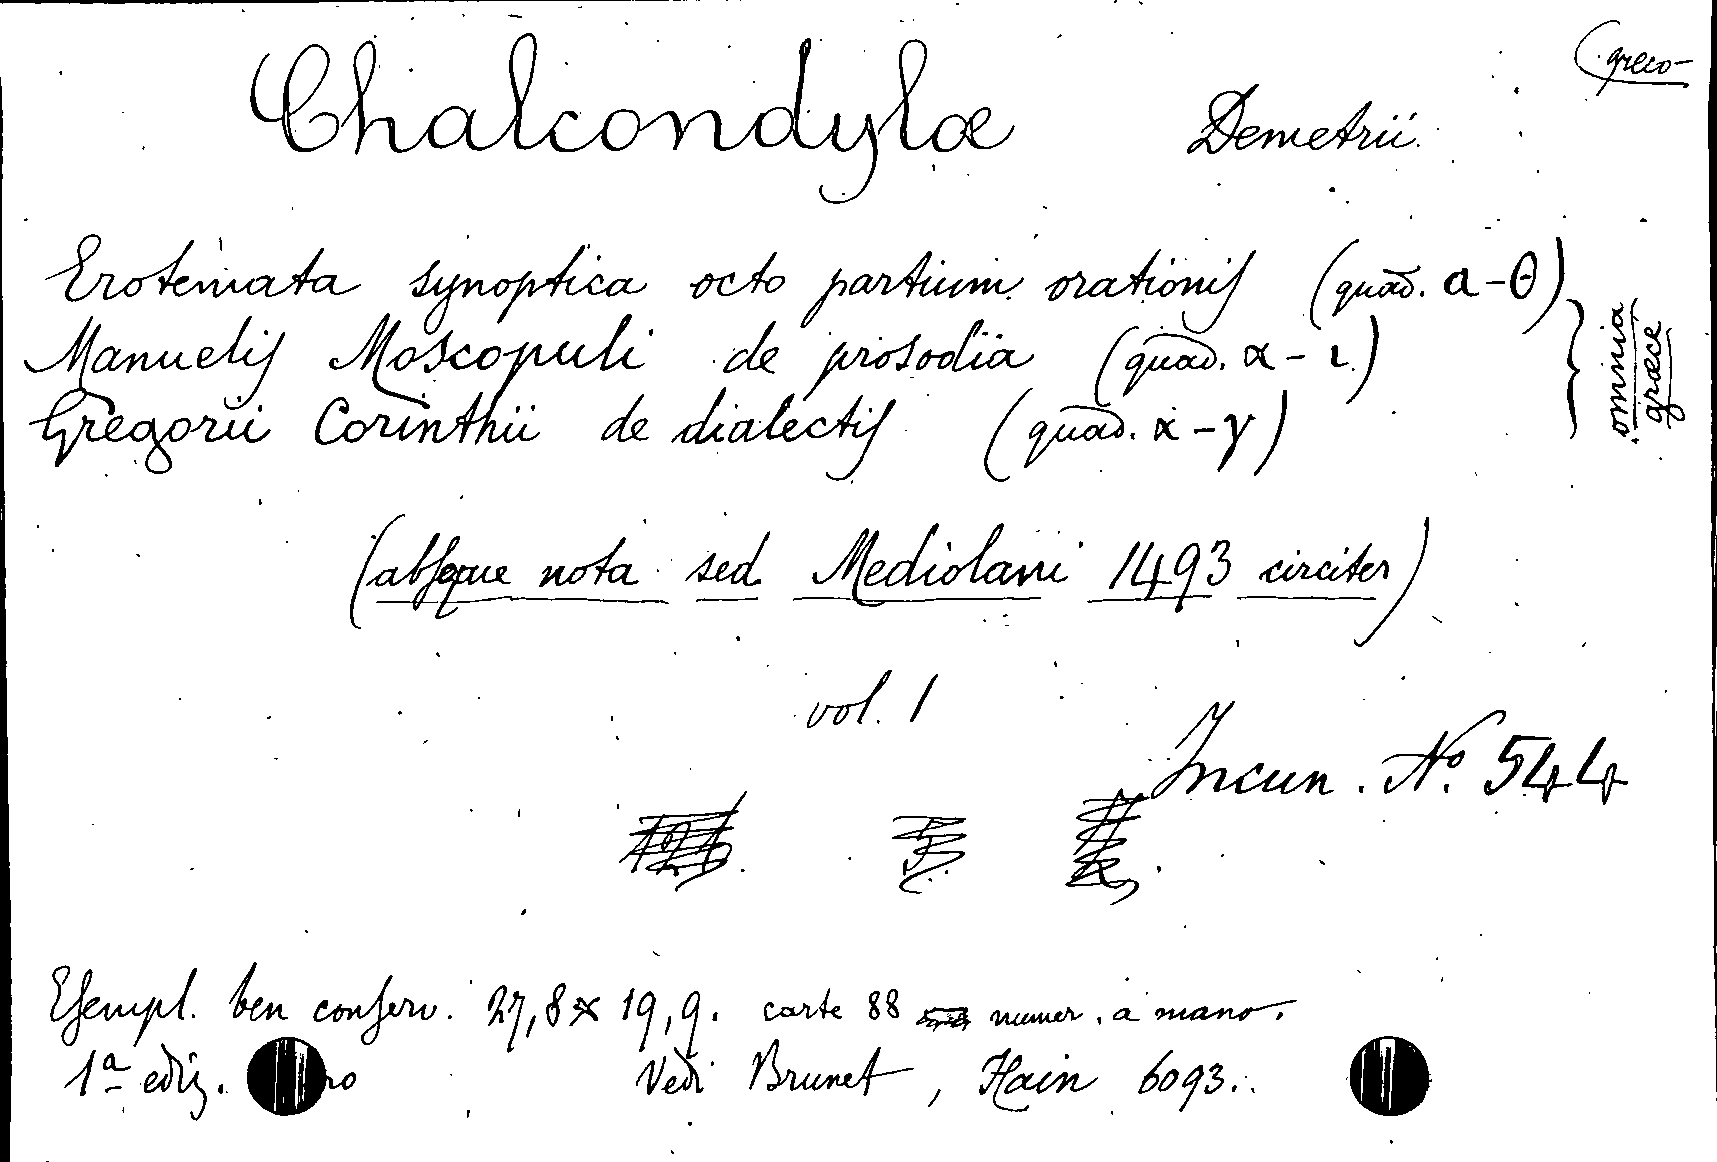 (greco-
Chalcondylæ Demetrii
Erotemata synoptica octo partium orationis (quad. α-θ)
Manuelis Moscopuli de prosodia (quad. α-ι)
Gregorii Corinthii de dialectis (quad. α-γ)
omnia
græce
(absque nota sed Mediolani 1493 circiter)
vol. 1
Incun. Nº 544
Esempl. ben conserv. 27,8 × 19,9. carte 88 numer. a mano.
1ª ediz. Vedi Brunet, Hain 6093.